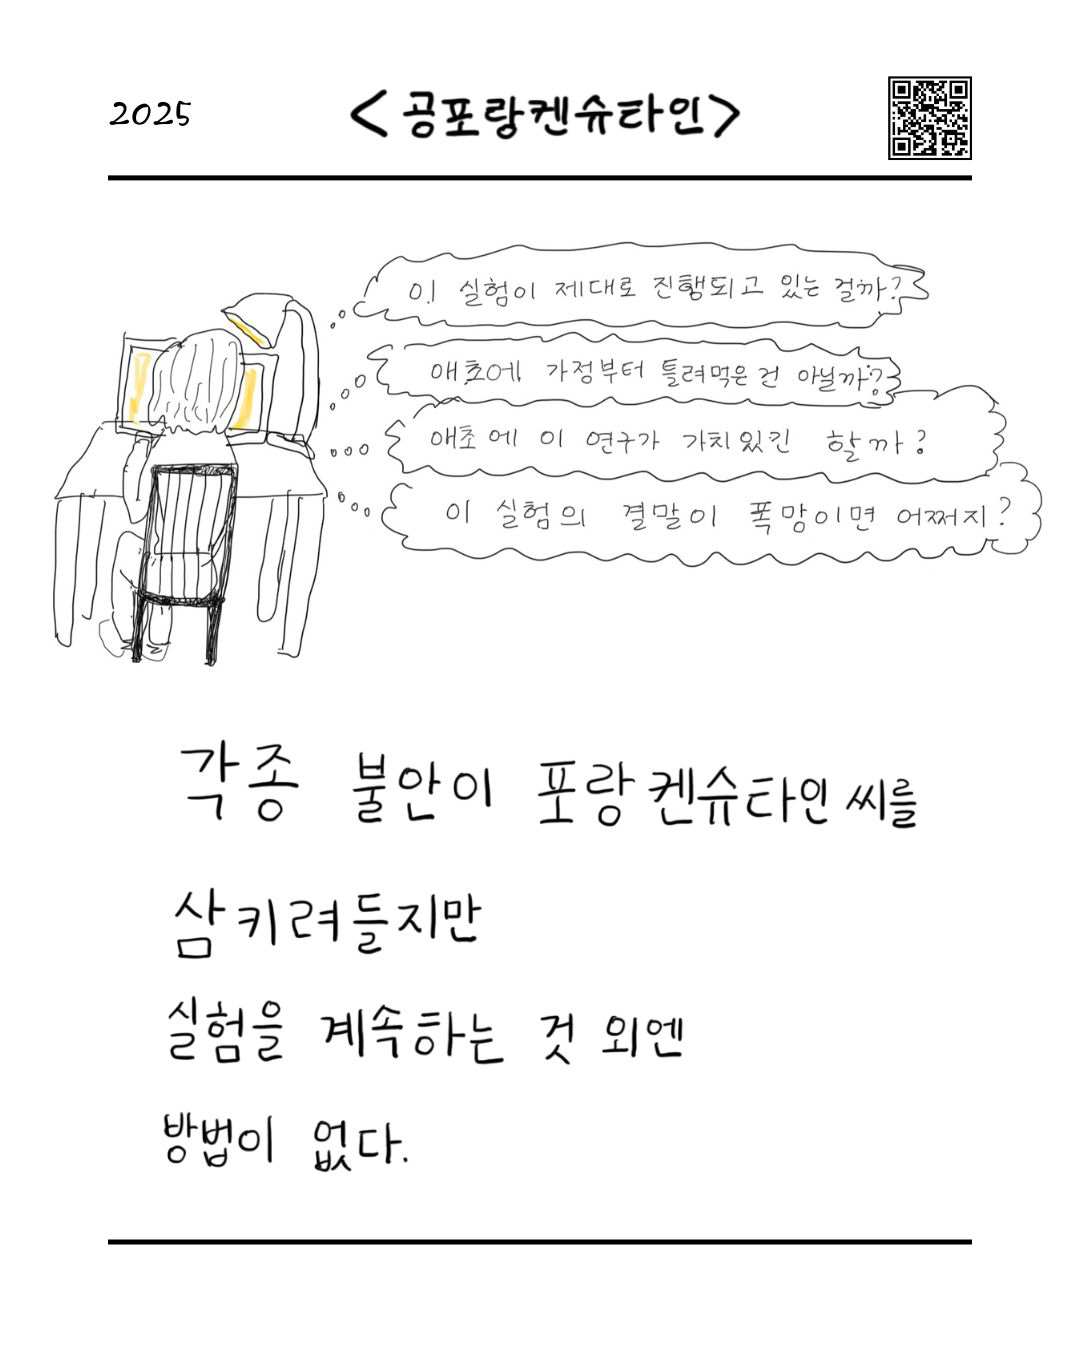 2025
<공포랑켄슈타인>
이 실험이 제대로 진행되고 있는 걸까?
애초에 가정부터 틀려먹은 건 아닐까?
애초에 이 연구가 가치있긴 할까?
이 실험의 결말이 폭망이면 어쩌지?
각종 불안이 포랑켄슈타인씨를
삼키려들지만
실험을 계속하는 것 외엔
방법이 없다.